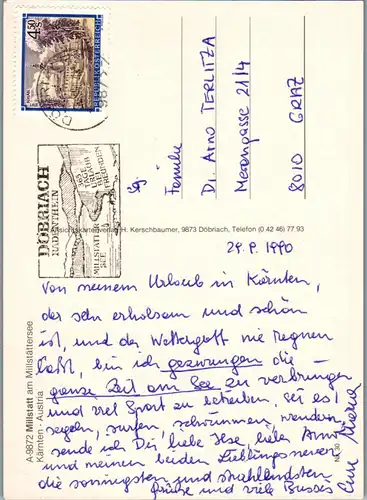 4.50
S
REPUBLIK ÖSTERREICH
9873
DÖBRIACH
RADENTHEIN
365
TAGE
URLAUB
BEI
FREUNDEN
MILLSTÄTTER
SEE
Sg.
Familie
DI. Arno TERLITZA
Merangasse 21/4
8010 GRAZ
H. Kerschbaumer, 9873 Döbriach, Telefon (0 42 46) 77 93
29.8.1990
Von meinem Urlaub in Kärnten,
der sehr erholsam und schön
ist, und der Wettergott nie regnen
läßt, bin ich gezwungen die
ganze Zeit am See zu verbringen
und viel Sport zu betreiben. Sei es!
segeln, surfen, schwimmen, wandern,
sende ich Dir, liebe Ilse, lieber Arno
und meinen beiden Lieblingsneven
die sonnigsten und strahlendsten
Grüße und viele Bussis
Eure
A-9872 Millstatt am Millstättersee
Kärnten - Austria
Nr. 30